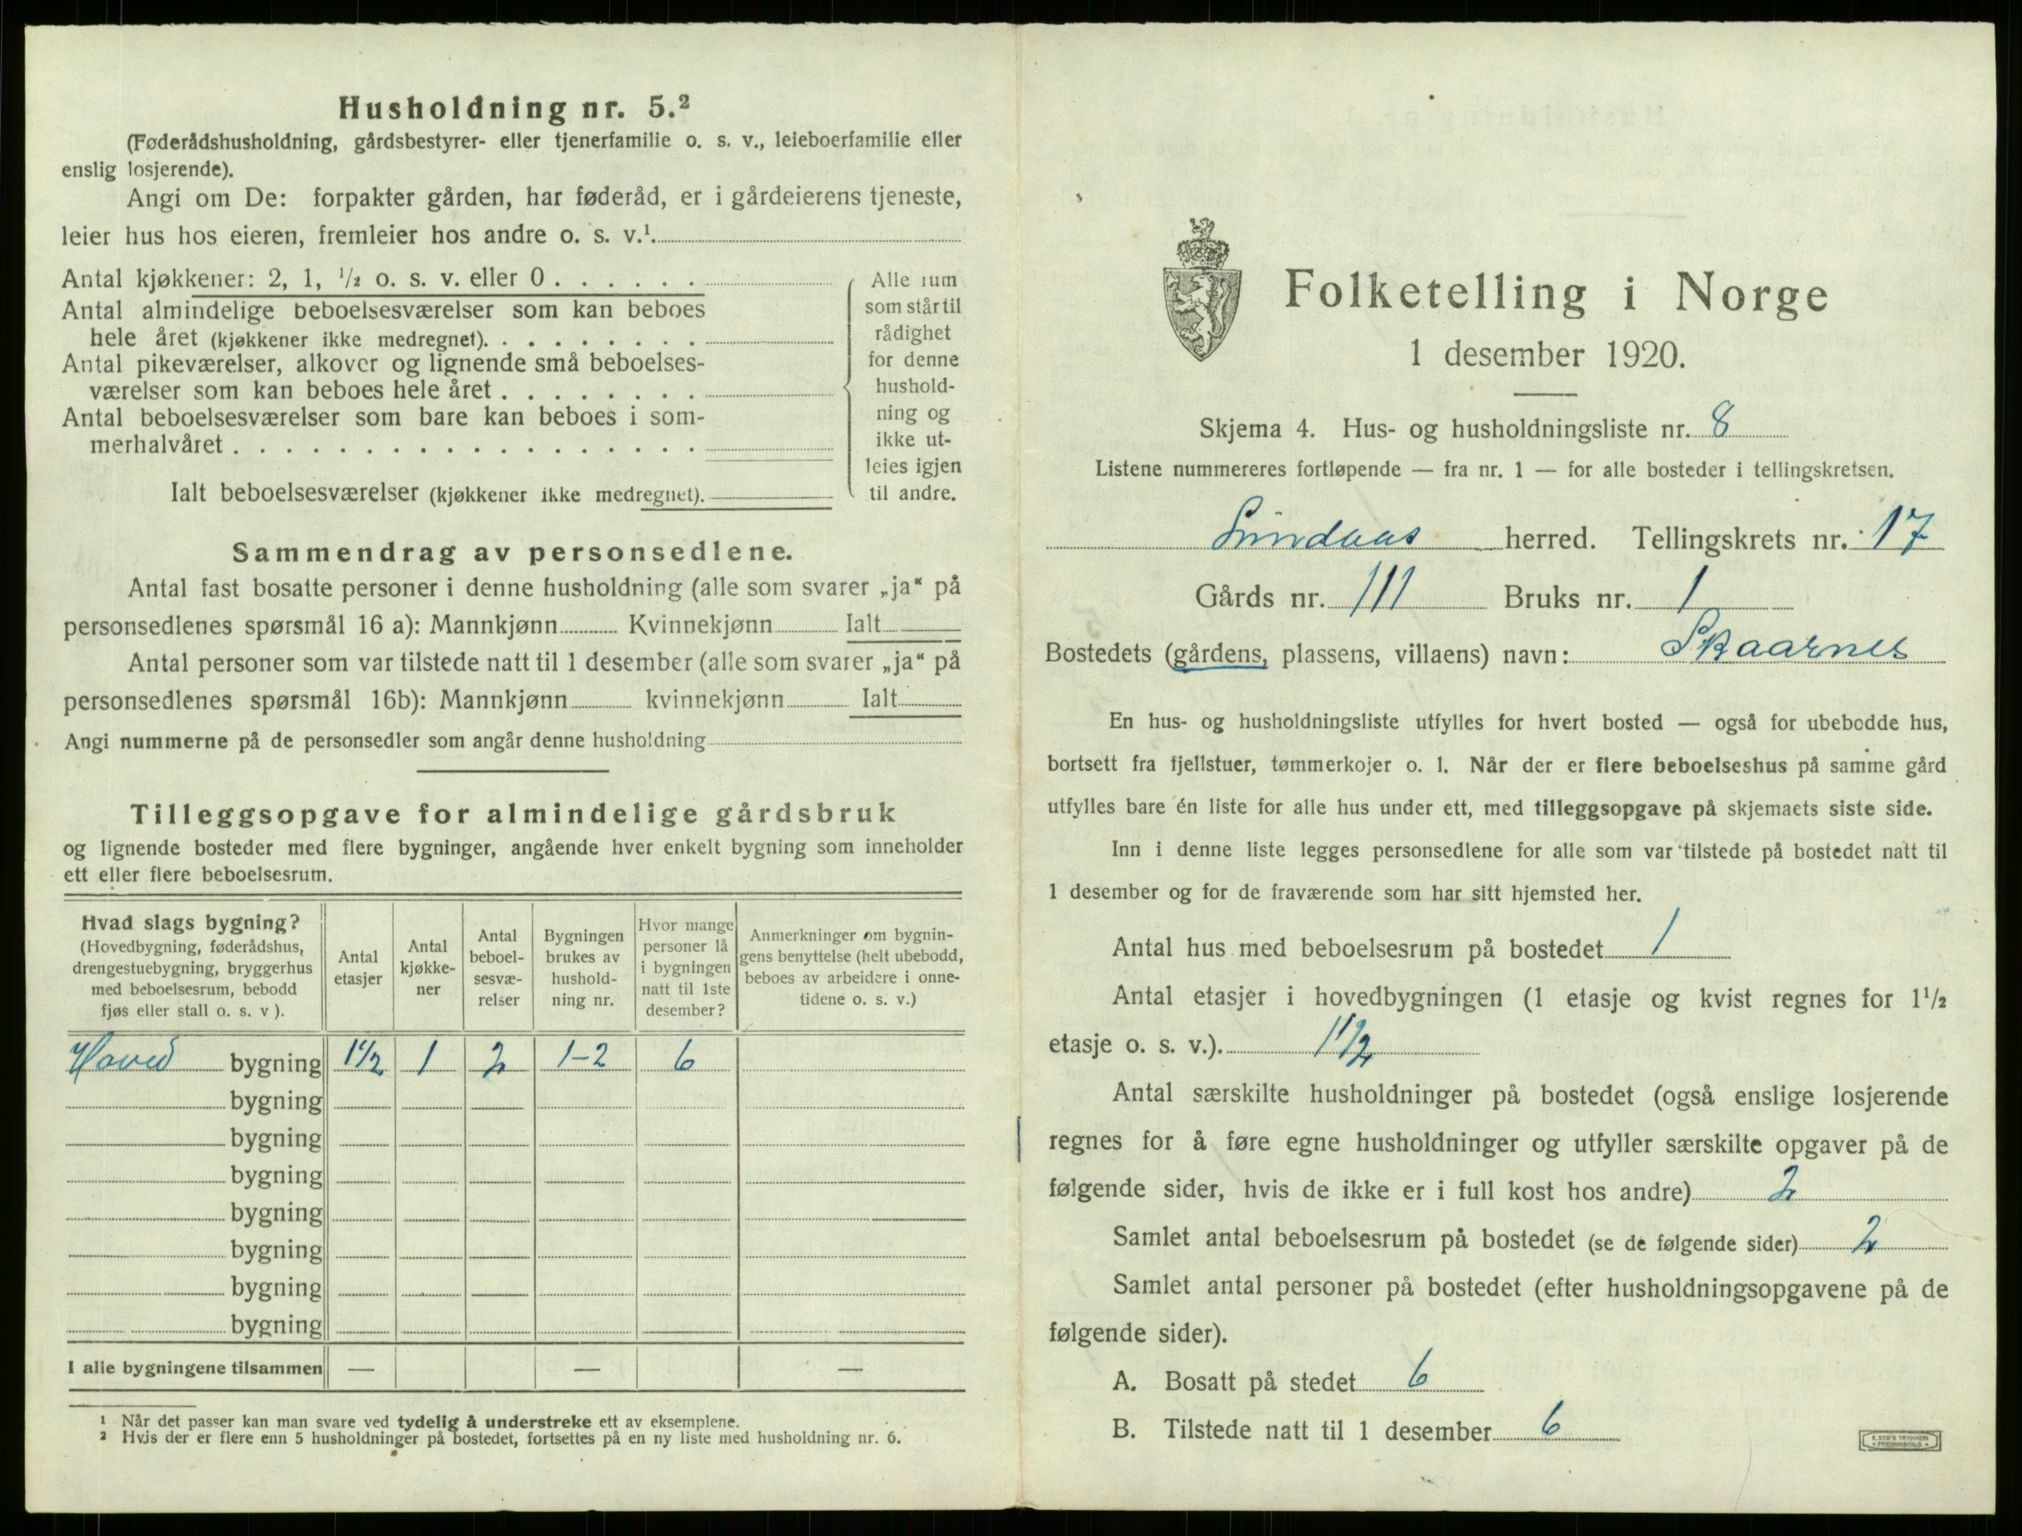 Husholdning nr. 5.²
(Føderådshusholdning, gårdsbestyrer- eller tjenerfamilie o. s. v., leieboerfamilie eller
enslig losjerende).
Angi om De: forpakter gården, har føderåd, er i gårdeierens tjeneste,
leier hus hos eieren, fremleier hos andre o. s. v.¹.
Antal kjøkkener: 2, 1, ½ o. s. v. eller 0 . . . . . .
Antal almindelige beboelsesværelser som kan beboes
hele året (kjøkkener ikke medregnet). . . . . . . . .
Antal pikeværelser, alkover og lignende små beboelses-
værelser som kan beboes hele året . . . . . . . .
Antal beboelsesværelser som bare kan beboes i som-
merhalvåret . . . . . . . . . . . . . . . . . .
Ialt beboelsesværelser (kjøkkener ikke medregnet).
Alle rum
som står til
rådighet
for denne
hushold-
ning og
ikke ut-
leies igjen
til andre.
Sammendrag av personsedlene.
Antal fast bosatte personer i denne husholdning (alle som svarer „ja“ på
personsedlenes spørsmål 16 a): Mannkjønn Kvinnekjønn Ialt
Antal personer som var tilstede natt til 1 desember (alle som svarer „ja“ på
personsedlenes spørsmål 16b): Mannkjønn kvinnekjønn Ialt
Angi nummerne på de personsedler som angår denne husholdning
Tilleggsopgave for almindelige gårdsbruk
og lignende bosteder med flere bygninger, angående hver enkelt bygning som inneholder
ett eller flere beboelsesrum.
Hvad slags bygning?
(Hovedbygning, føderådshus,
drengestuebygning, bryggerhus
med beboelsesrum, bebodd
fjøs eller stall o. s. v ).
Antal
etasjer
Antal
kjøkke-
ner
Antal
beboel-
sesvæ-
relser
Bygningen
brukes av
hushold-
ning nr.
Hvor mange
personer lå
i bygningen
natt til 1ste
desember?
Anmerkninger om bygnin-
gens benyttelse (helt ubebodd,
beboes av arbeidere i onne-
tidene o. s. v.)
Hoved bygning 1½ 1 2 1-2 6
bygning
bygning
bygning
bygning
bygning
bygning
bygning
I alle bygningene tilsammen — — —
¹ Når det passer kan man svare ved tydelig å understreke ett av eksemplene.
² Hvis der er flere enn 5 husholdninger på bostedet, fortsettes på en ny liste med husholdning nr. 6.
Folketelling i Norge
1 desember 1920.
Skjema 4. Hus- og husholdningsliste nr. 8
Listene nummereres fortløpende — fra nr. 1 — for alle bosteder i tellingskretsen.
Lindaas herred. Tellingskrets nr. 17
Gårds nr. 111 Bruks nr. 1
Bostedets (gårdens, plassens, villaens) navn: Skaarnes
En hus- og husholdningsliste utfylles for hvert bosted — også for ubebodde hus,
bortsett fra fjellstuer, tømmerkojer o. l. Når der er flere beboelseshus på samme gård
utfylles bare én liste for alle hus under ett, med tilleggsopgave på skjemaets siste side.
Inn i denne liste legges personsedlene for alle som var tilstede på bostedet natt til
1 desember og for de fraværende som har sitt hjemsted her.
Antal hus med beboelsesrum på bostedet 1
Antal etasjer i hovedbygningen (1 etasje og kvist regnes for 1½
etasje o. s. v.). 1½
Antal særskilte husholdninger på bostedet (også enslige losjerende
regnes for å føre egne husholdninger og utfyller særskilte opgaver på de
følgende sider, hvis de ikke er i full kost hos andre) 2
Samlet antal beboelsesrum på bostedet (se de følgende sider) 2
Samlet antal personer på bostedet (efter husholdningsopgavene på de
følgende sider).
A. Bosatt på stedet 6
B. Tilstede natt til 1 desember 6